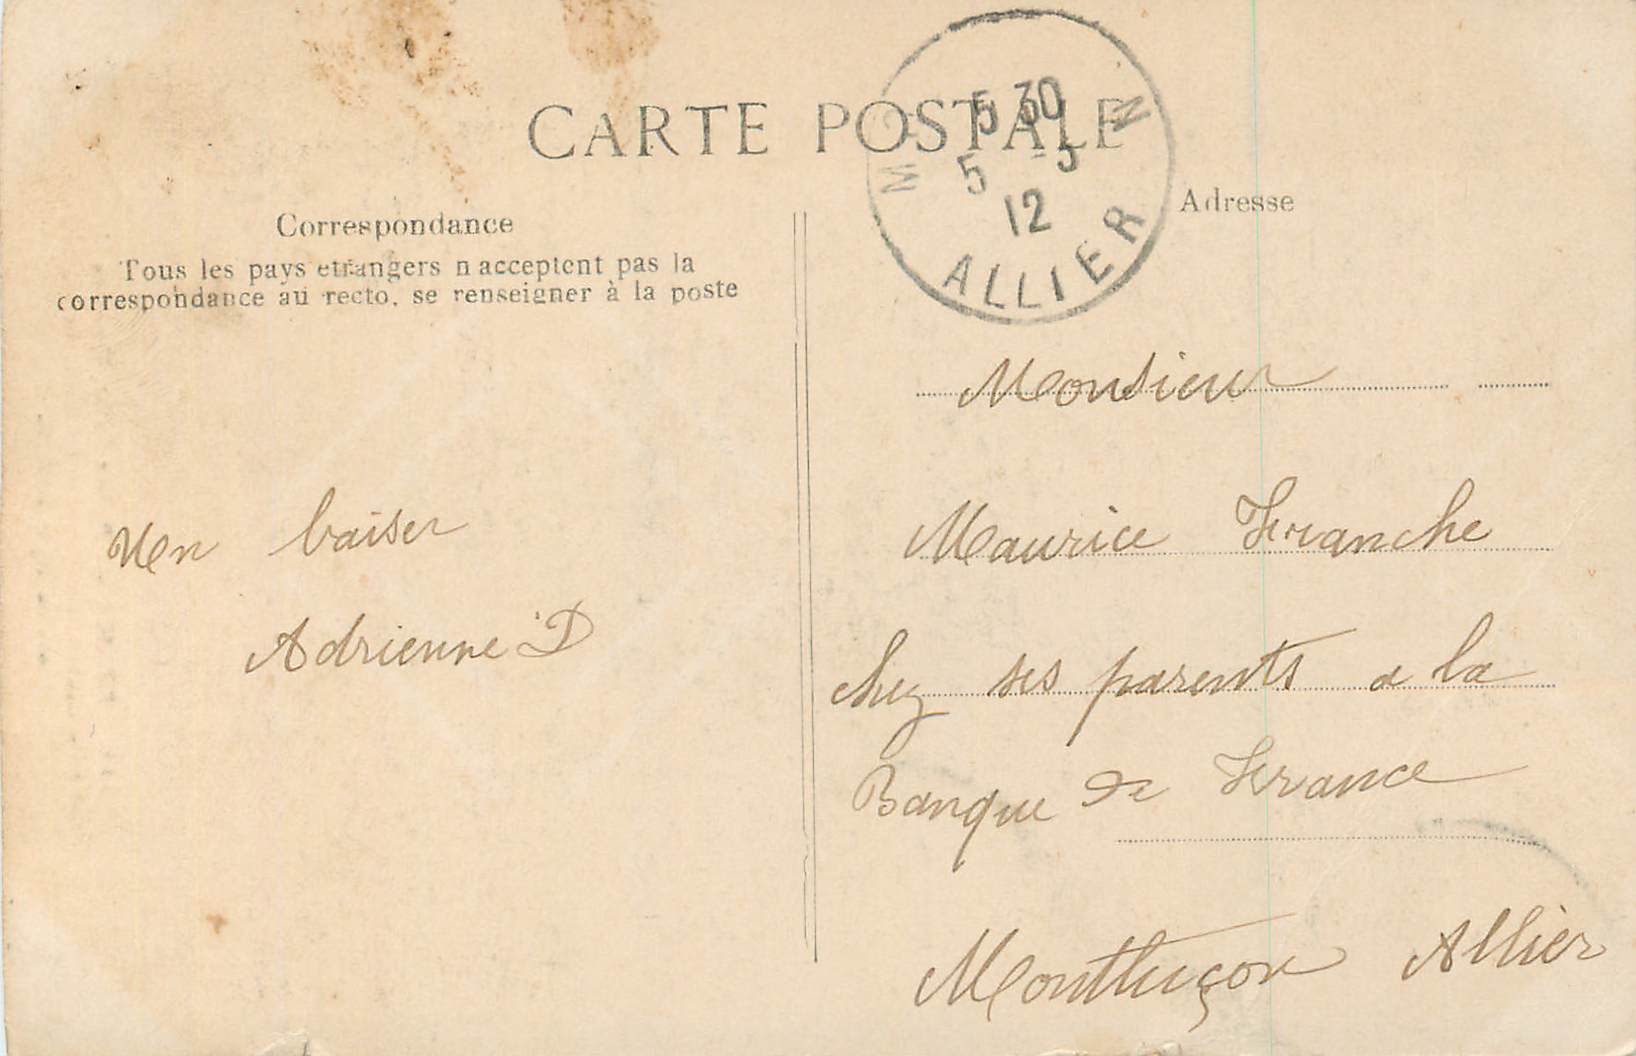 CARTE POSTALE
5 30
5 -5
12
ALLIER
Correspondance
Tous les pays etrangers n acceptent pas la
correspondance au recto, se renseigner à la poste
Un baiser
Adrienne D
Adresse
Monsieur
Maurice Franche
chez ses parents a la
Banque de France
Montluçon Allier